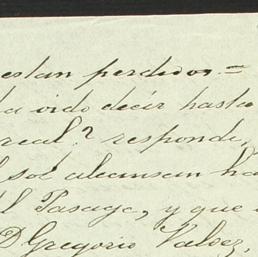 estan perdidos. =
ha oido decir hasta
real? responde,
sol alcansan ha
el Pasage, y que
D Gregorio Valsez,